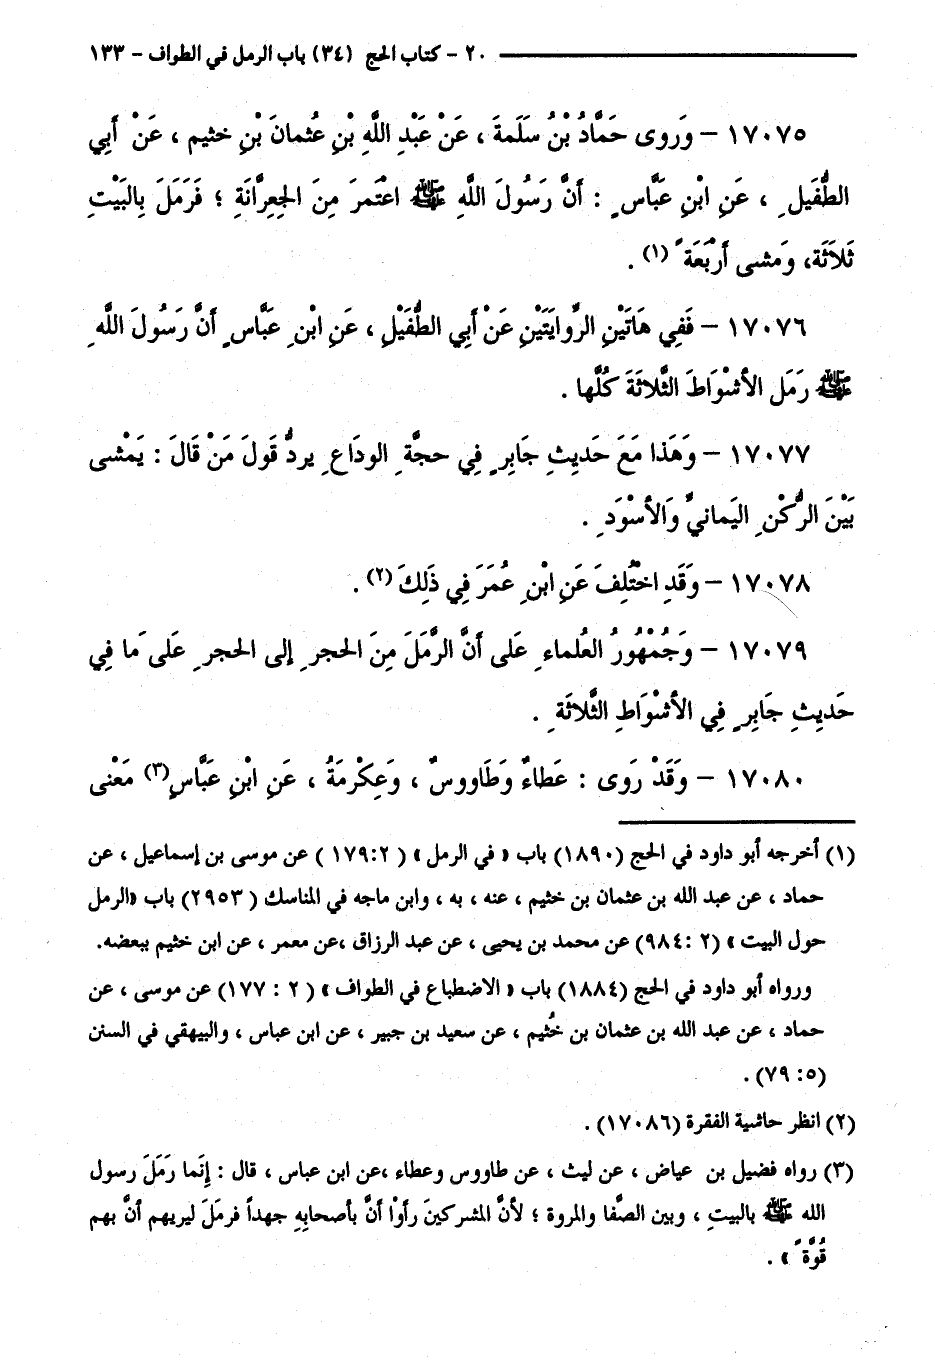 ٢٠ - كتاب الحج (٣٤) باب الرمل في الطواف - ١٣٣
١٧٠٧٥ - وَروى حَمَّادُ بْنُ سَلَمةَ ، عَنْ عَبْدِ اللَّهِ بْنِ عُثمانَ بْنِ خثيم ، عَنْ أَبِي
الطُّفَيلِ ، عَنِ ابْنِ عَبَّاسٍ : أَنَّ رَسُولَ اللَّهِ ﷺ اعْتَمرَ مِنَ الجِعِرَّانَةِ ؛ فَرَمَلَ بِالبَيْتِ
ثَلاَثَة، ومَشى أَرْبَعَةً (١) .
١٧٠٧٦ - فَفِي هَاتَيْنِ الرِّوايَتَيْنِ عَنْ أَبِي الطُّفَيْلِ ، عَنِ ابْنِ عَبَّاسٍ أَنَّ رَسُولَ اللَّهِ
ﷺ رَمَل الأشْوَاطَ الثَّلاثَةَ كُلَّها .
١٧٠٧٧ - وَهَذا مَعَ حَديثِ جَابِرٍ فِي حجَّةِ الودَاعِ يردُّ قَولَ مَنْ قَالَ : يَمْشى
بَيْنَ الرُّكْنِ اليَمانيِّ وَالأسْوَدِ .
١٧٠٧٨ - وَقَدِ اخْتُلِفَ عَنِ ابْنِ عُمَرَ فِي ذَلِكَ (٢) .
١٧٠٧٩ - وَجُمْهُورُ العُلماءِ عَلى أَنَّ الرَّمَلَ مِنَ الحجرِ إلى الحجرِ عَلى مَا فِي
حَديثِ جَابِرٍ فِي الأشْوَاطِ الثَّلاثَةِ .
١٧٠٨٠ - وَقَدْ رَوَى : عَطاءٌ وَطَاووسٌ ، وَعِكْرمَةُ ، عَنِ ابْنِ عَبَّاسٍ (٣) مَعْنى
(١) أخرجه أبو داود في الحج (١٨٩٠) باب « في الرمل » (١٧٩:٢ ) عن موسى بن إسماعيل ، عن
حماد ، عن عبد الله بن عثمان بن خثيم ، عنه ، به ، وابن ماجه في المناسك (٢٩٥٣) باب «الرمل
حول البيت » (٢ :٩٨٤) عن محمد بن يحيى ، عن عبد الرزاق ،عن معمر ، عن ابن خثيم ببعضه.
ورواه أبو داود في الحج (١٨٨٤) باب « الاضطباع في الطواف » (٢ : ١٧٧) عن موسى ، عن
حماد ، عن عبد الله بن عثمان بن خُثيم ، عن سعيد بن جبير ، عن ابن عباس ، والبيهقي في السنن
(٥: ٧٩) .
(٢) انظر حاشية الفقرة (١٧٠٨٦) .
(٣) رواه فضيل بن عياض ، عن ليث ، عن طاووس وعطاء ،عن ابن عباس ، قال : إِنَّما رَمَلَ رسول
الله ﷺ بالبيتِ ، وبين الصَّفا والمروة ؛ لأنَّ المشركينَ رأَوْا أنَّ بأصحابِهِ جهداً فرمَلَ ليريهم أنَّ بهم
قُوَّةً » .